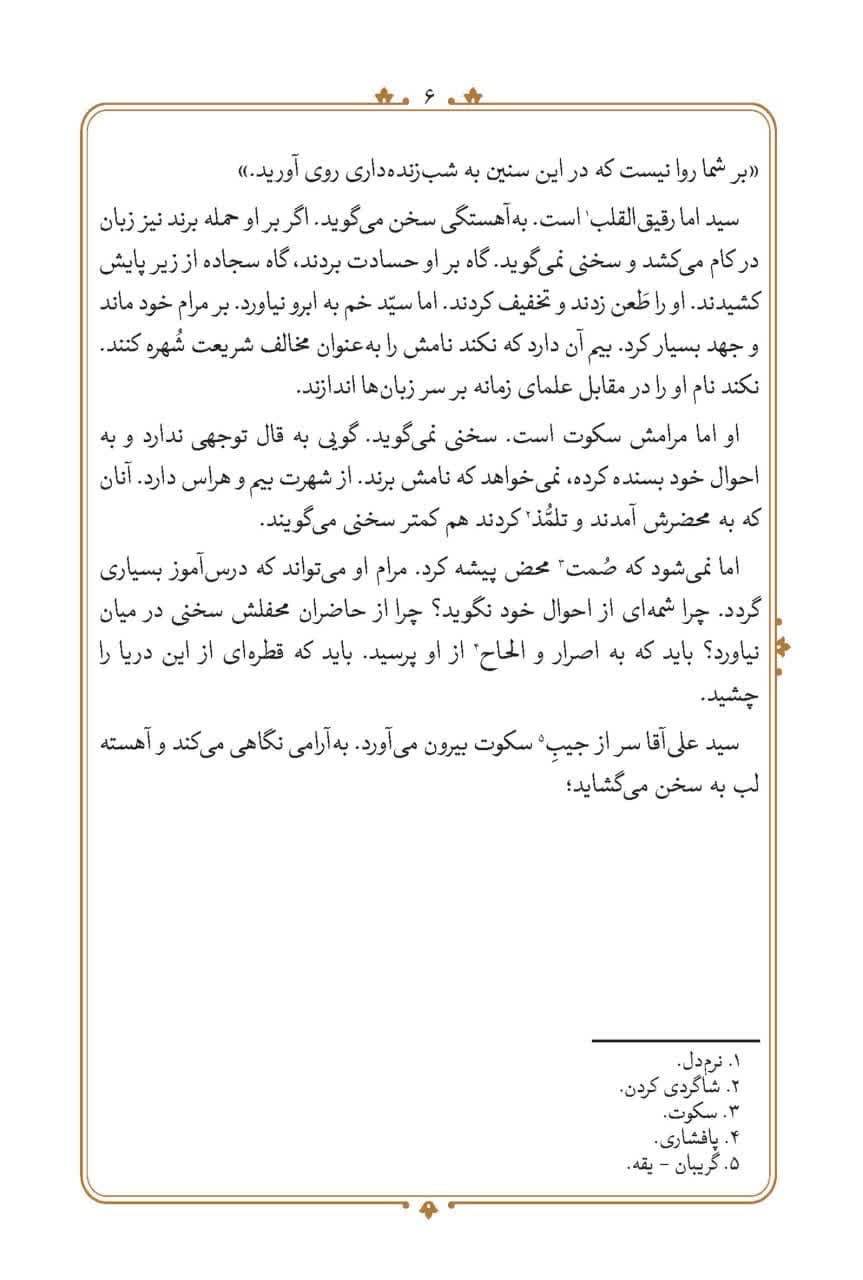 ۶
«بر شما روا نیست که در این سنین به شب‌زنده‌داری روی آورید.»
سید اما رقیق‌القلب۱ است. به‌آهستگی سخن می‌گوید. اگر بر او حمله برند نیز زبان
در کام می‌کشد و سخنی نمی‌گوید. گاه بر او حسادت بردند، گاه سجاده از زیر پایش
کشیدند. او را طَعن زدند و تخفیف کردند. اما سیّد خم به ابرو نیاورد. بر مرام خود ماند
و جهد بسیار کرد. بیم آن دارد که نکند نامش را به‌عنوان مخالف شریعت شُهره کنند.
نکند نام او را در مقابل علمای زمانه بر سر زبان‌ها اندازند.
او اما مرامش سکوت است. سخنی نمی‌گوید. گویی به قال توجهی ندارد و به
احوال خود بسنده کرده، نمی‌خواهد که نامش برند. از شهرت بیم و هراس دارد. آنان
که به محضرش آمدند و تلمُّذ۲ کردند هم کمتر سخنی می‌گویند.
اما نمی‌شود که صُمت۳ محض پیشه کرد. مرام او می‌تواند که درس‌آموز بسیاری
گردد. چرا شمه‌ای از احوال خود نگوید؟ چرا از حاضران محفلش سخنی در میان
نیاورد؟ باید که به اصرار و الحاح۴ از او پرسید. باید که قطره‌ای از این دریا را
چشید.
سید علی‌آقا سر از جیبِ۵ سکوت بیرون می‌آورد. به‌آرامی نگاهی می‌کند و آهسته
لب به سخن می‌گشاید؛
۱. نرم‌دل.
۲. شاگردی کردن.
۳. سکوت.
۴. پافشاری.
۵. گریبان - یقه.